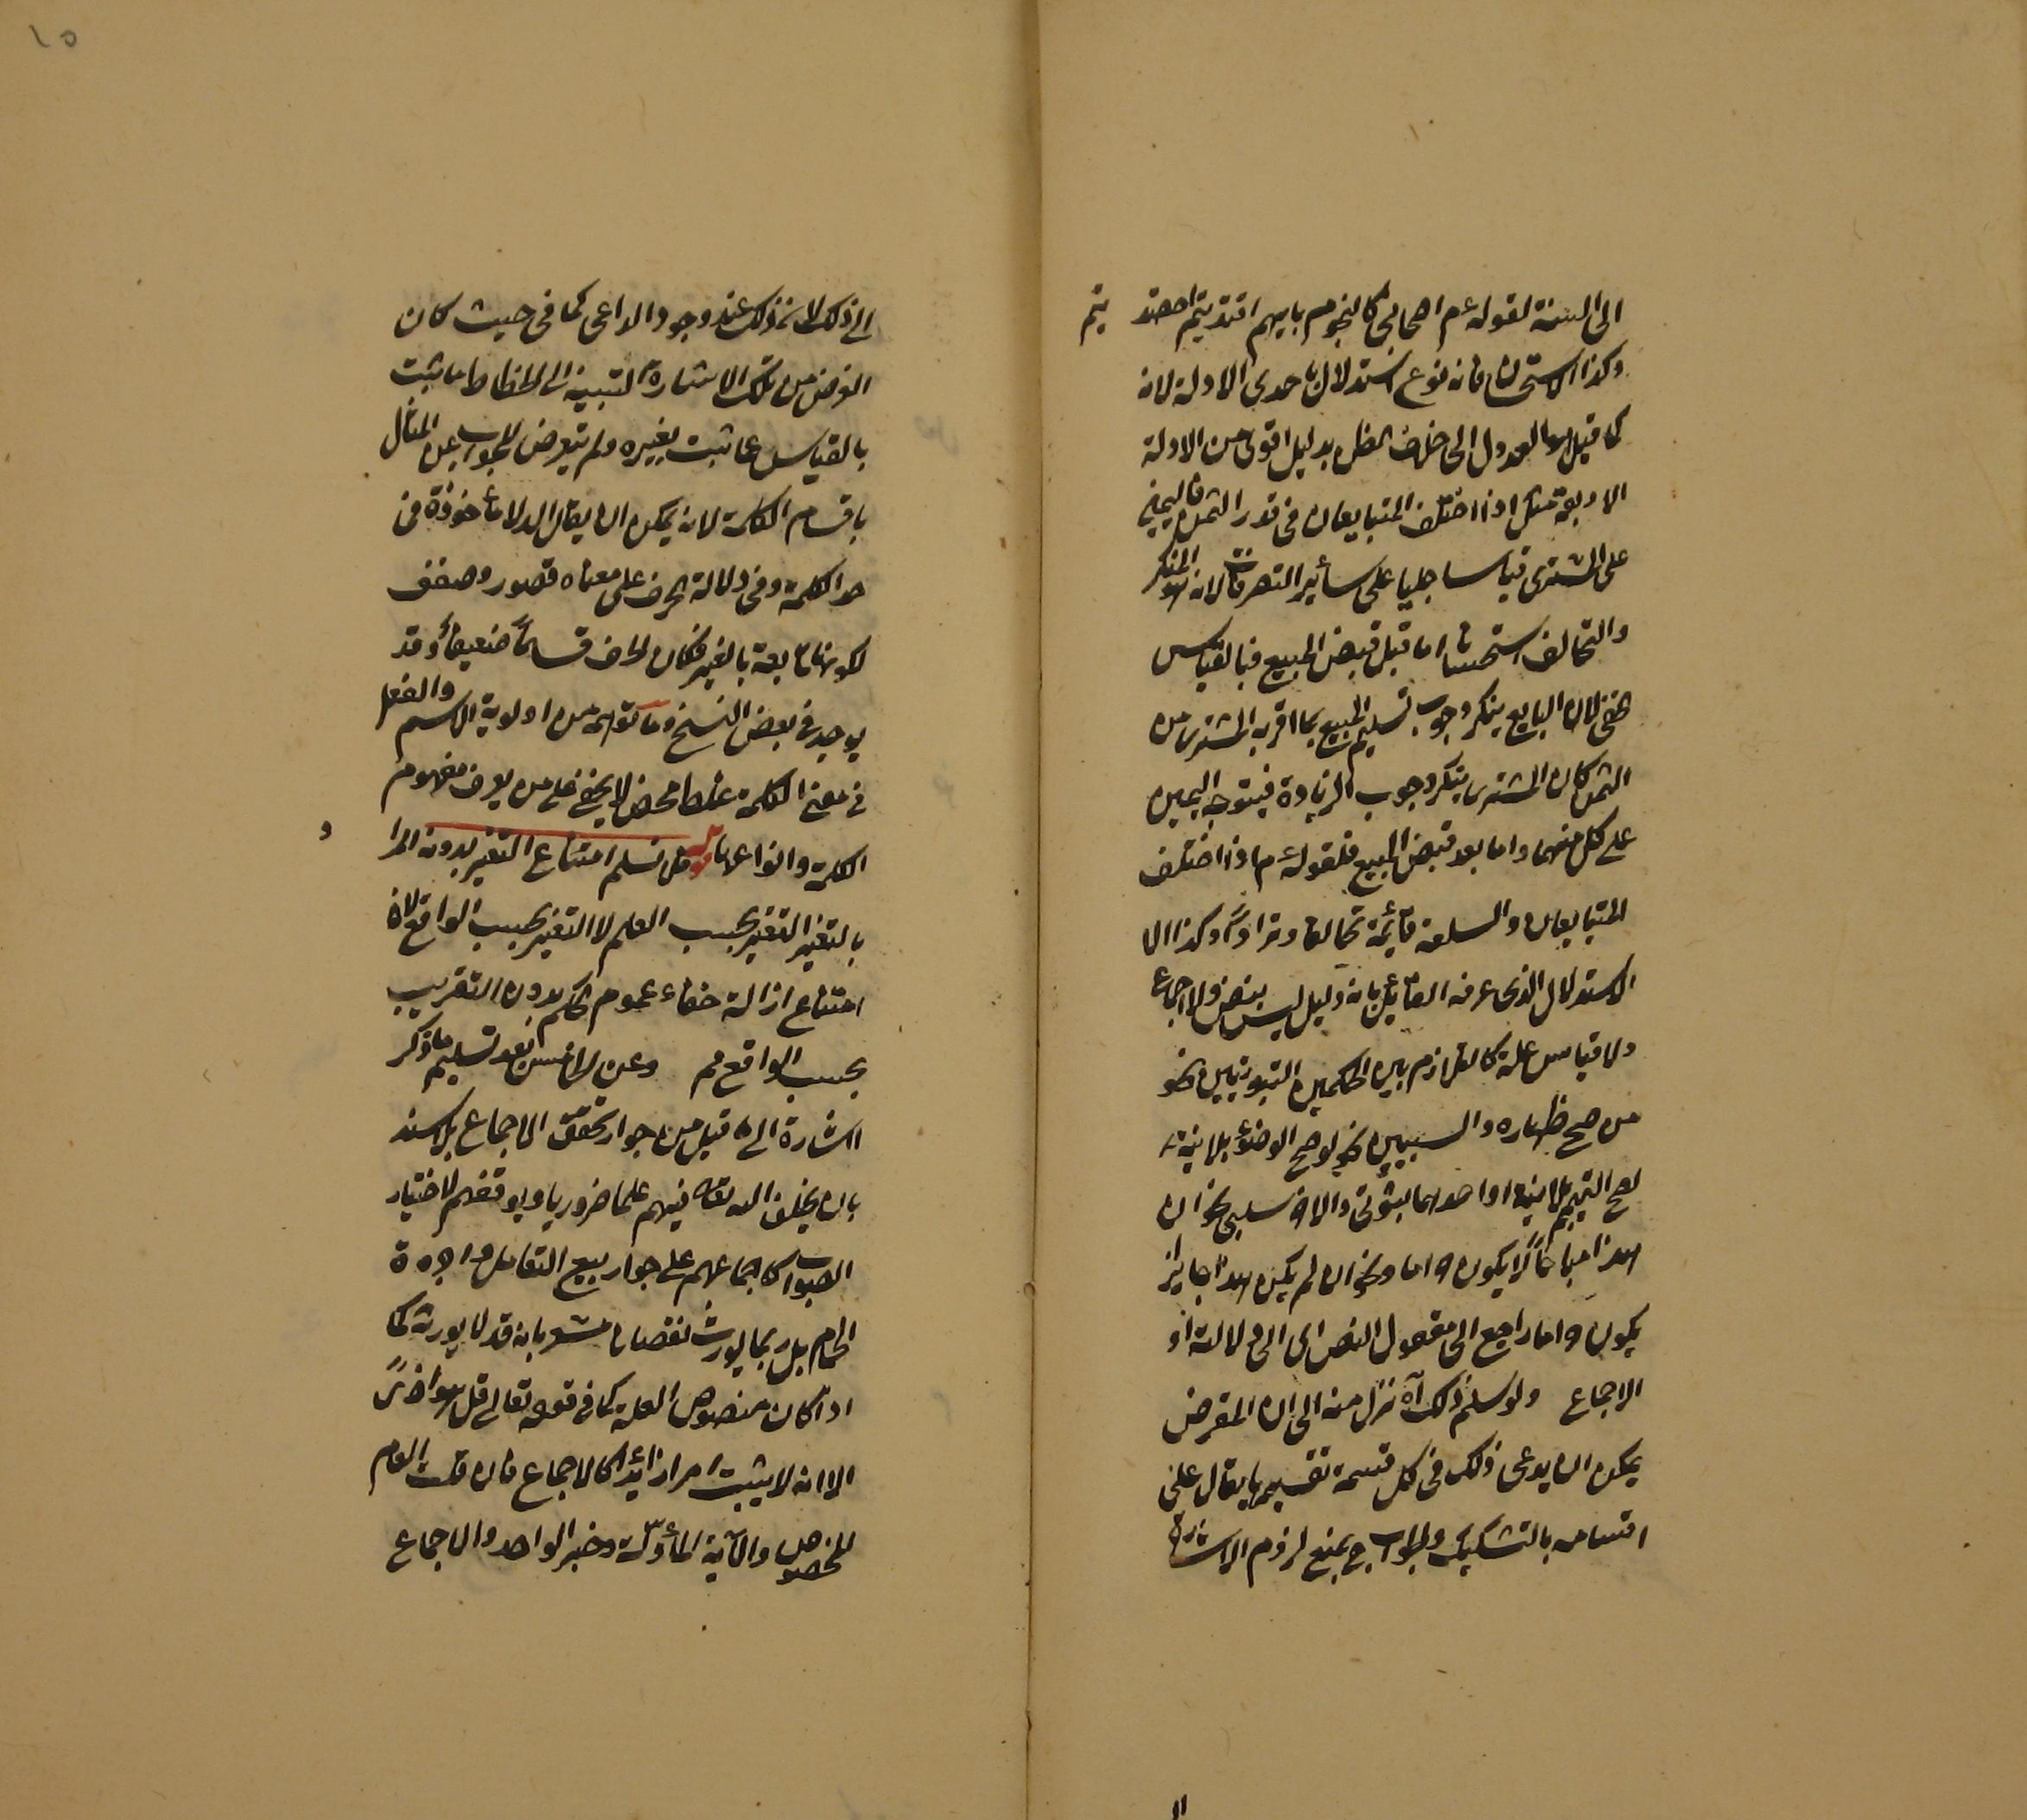 الى السنة لقوله عم اصحابى كالنجوم بايهم اقتديتم اهتد يتم
وكذا الاستحسان فانه نوع استدلال باحدى الادلة لانه
كما قيل هو العدول الى خلاف الظن بدليل اقوى من الادلة
الاربعة مثل اذا اختلف المتبايعان فى قدر الثمن فاليمين
على المشترى قياسا جليا على سائر التصرفات لانه المنكر
والتحالف استحسانا اما قبل قبض المبيع فبالقياس
الخفى لان البايع ينكر وجوب تسليم المبيع بما اقر به المشترى من
الثمن كان المشترى ينكر وجوب الزيادة فيتوجه اليمين
على كل منهما واما بعد قبض المبيع فلقوله عم اذا اختلف
المتبايعان والسلعة قائمة تحالفا وترادا وكذا الا
الاستدلال الذى عرفه القائل بانه دليل ليس بنص ولا اجماع
ولا قياس علة كالتلازم بين الحكمين الثبوتيين نحو
من صح ظهاره والسببين نحو لو صح الوضوء بلا نية
لصح التيمم بلا نية او احدهما ثبوتى والاخر سلبى نحو ان
هذا مباحا لا يكون حراما ونحو ان لم يكن هذا جايز
يكون حراما راجع الى معقول النص اى الى دلالته او
الاجماع ولو سلم ذلك آه تنزل منه الى ان المعرض
يمكن ان يدعى ذلك فى كل قسمة تقسيمها يقال على
اقسامه بالتشكيك والجواب ح بمنع لزوم الاشارة
١٥
الى ذلك لانه ذلك عند وجود الداعى كما فى حيث كان
الغرض من تلك الاشارة التنبيه الى انحطاط ما ثبت
بالقياس عما ثبت بغيره ولم يتعرض للجواب عن المثال
باقسام الكلمة لانه يمكن ان يقال الدلالة مأخوذة فى
حد الكلمة وفى دلالة الحرف على معناه قصور وضعف
لكونها تابعة بالغير فكان الحرف قسما ضعيفا وقد
يوجد فى بعض النسخ وما توهمه من اولوية الاسم والفعل
فى معنى الكلمة غلط محض لا يخفى على من يعرف مفهوم
الكلمة وانواعها قوله فلا نسلم امتناع التغير بدونه المراد
بالتغير التغير بحسب العلم لا التغير بحسب الواقع لان
امتناع ازالة خفاء عموم الحكم بدون التقريب
بحسب الواقع مم وعن الخامس بعد تسليم ما ذكر
اشارة الى ما قيل من جواز تحقق الاجماع بلا سند
بان يخلق الله تعالى فيهم علما ضروريا ويوفقهم لاختيار
الصواب كاجماعهم على جواز بيع التعامل واجرة
الحمام بل ربما يورث نقصانا مشعر بانه قد لا يورثه كما
اذا كان منصوص العلة كما فى قوله تعالى قل هو اذى
الا انه لا يثبت امرا زائدا كالاجماع فان قلت العام
المخصوص والآية المأولة وخبر الواحد والاجماع